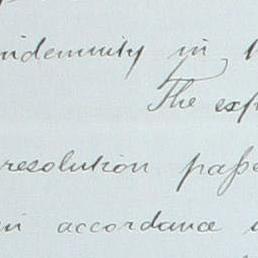 indemnity in
The exp
resolution passe
in accordance